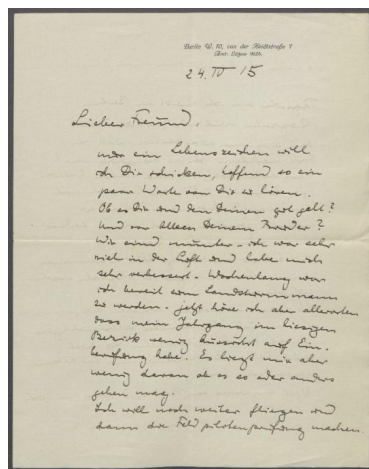 Berlin W. 10, von der Heydtstraße 7
Amt: Lützow
24. IV 15
Lieber Freund,
nur ein Lebenszeichen will
ich Dir schicken, hoffend so ein
paar Worte von Dir zu hören.
Ob es Dir und den Deinen gut geht?
Und vor Allem Deinem Bruder?
Wir sind munter - ich war sehr
viel in der Luft und habe mich
sehr verbessert. Wochenlang war
ich bereit zum Landsturmmann
zu werden. jetzt höre ich aber allerorten
dass mein Jahrgang im hiesigen
Bezirk wenig Aussicht auf Ein-
berufung habe. Es liegt mir aber
wenig daran ob es so oder anders
gehen mag.
Ich will noch weiter fliegen und
dann die Feldpilotenprüfung machen.